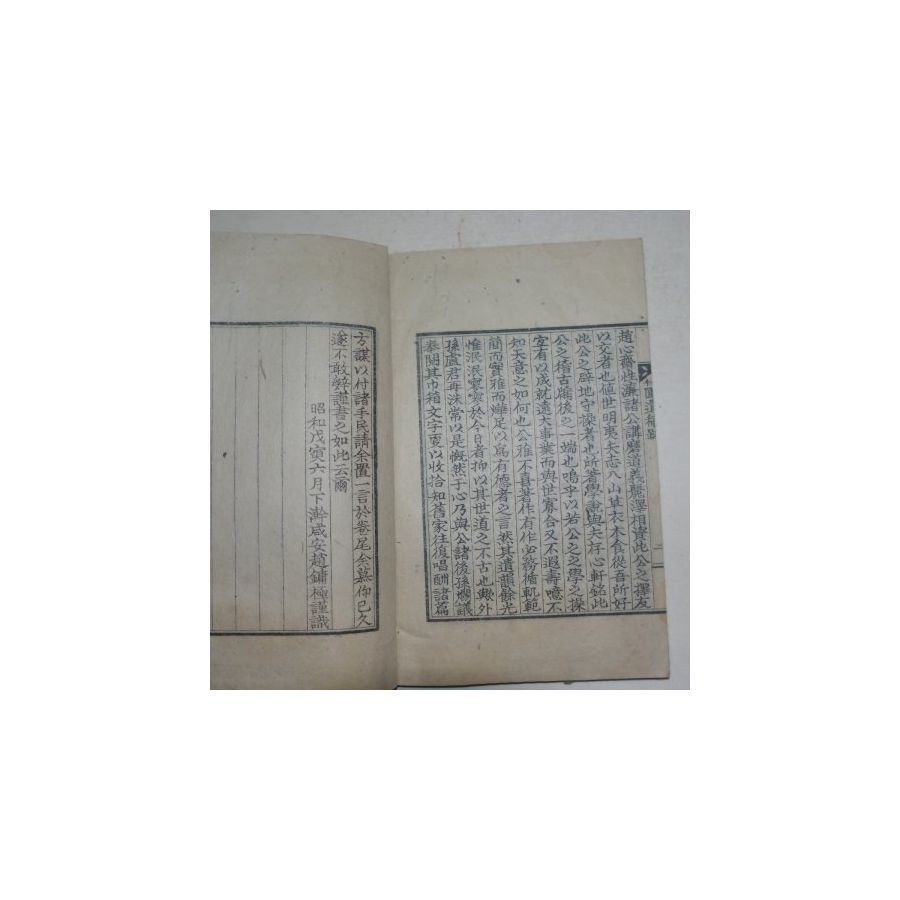 趙心齋性濂諸公講磨道義麗澤相資此公之擇友
以交者也値世明夷矢志入山草衣木食從吾所好
此公之辟地守操者也所著學說與夫存心軒銘此
公之稽古牖後之一端也嗚乎以若公之之學之操
宜有以成就遠大事業而與世寡合又不遐壽噫不
知天意之如何也公雅不喜著作有作必務循軌範
簡而實雅而曄足以爲有德者之言然其遺韻餘光
惟泯泯寥寥於今日者抑以其世道之不古也歟外
孫盧君每洙常以是慨然于心乃與公諸後孫爛議
奉閱其巾箱文字更以收拾知舊家往復唱酬諸篇
方謀以付諸手民請余置一言於卷尾余慕仰已久
遂不敢辭謹書之如此云爾
昭和戊寅六月下澣咸安趙鏞極謹識